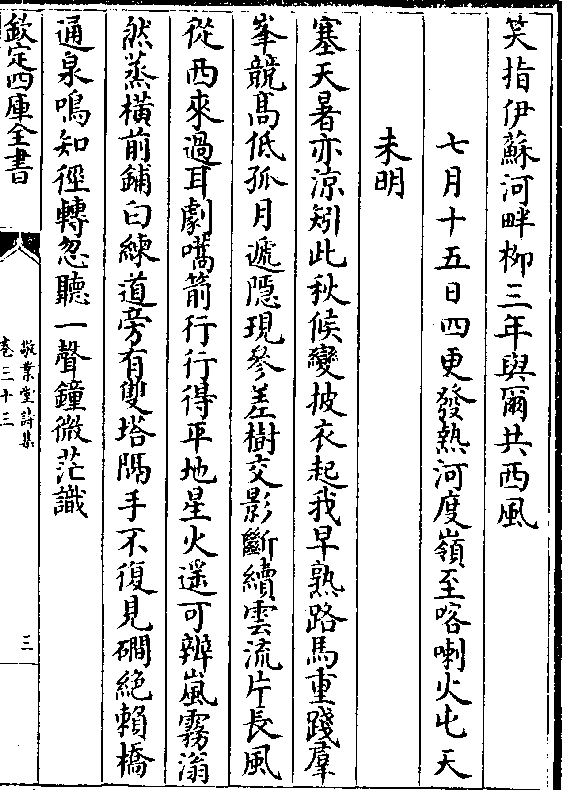 笑指伊蘇河畔柳三年與爾共西風
七月十五日四更發熱河度嶺至喀喇火屯天
未明
塞天暑亦涼矧此秋候變披衣起我早熟路馬重踐羣
峯競髙低孤月遞隠現參差樹交影斷續雲流片長風
從西來過耳劇嚆箭行行得平地星火遥可辨嵐霧滃
然蒸橫前鋪白練道旁有雙塔隔手不復見磵絶賴橋
通泉鳴知徑轉忽聽一聲鐘微茫識
欽定四庫全書
敬業堂詩集
卷三十三
三